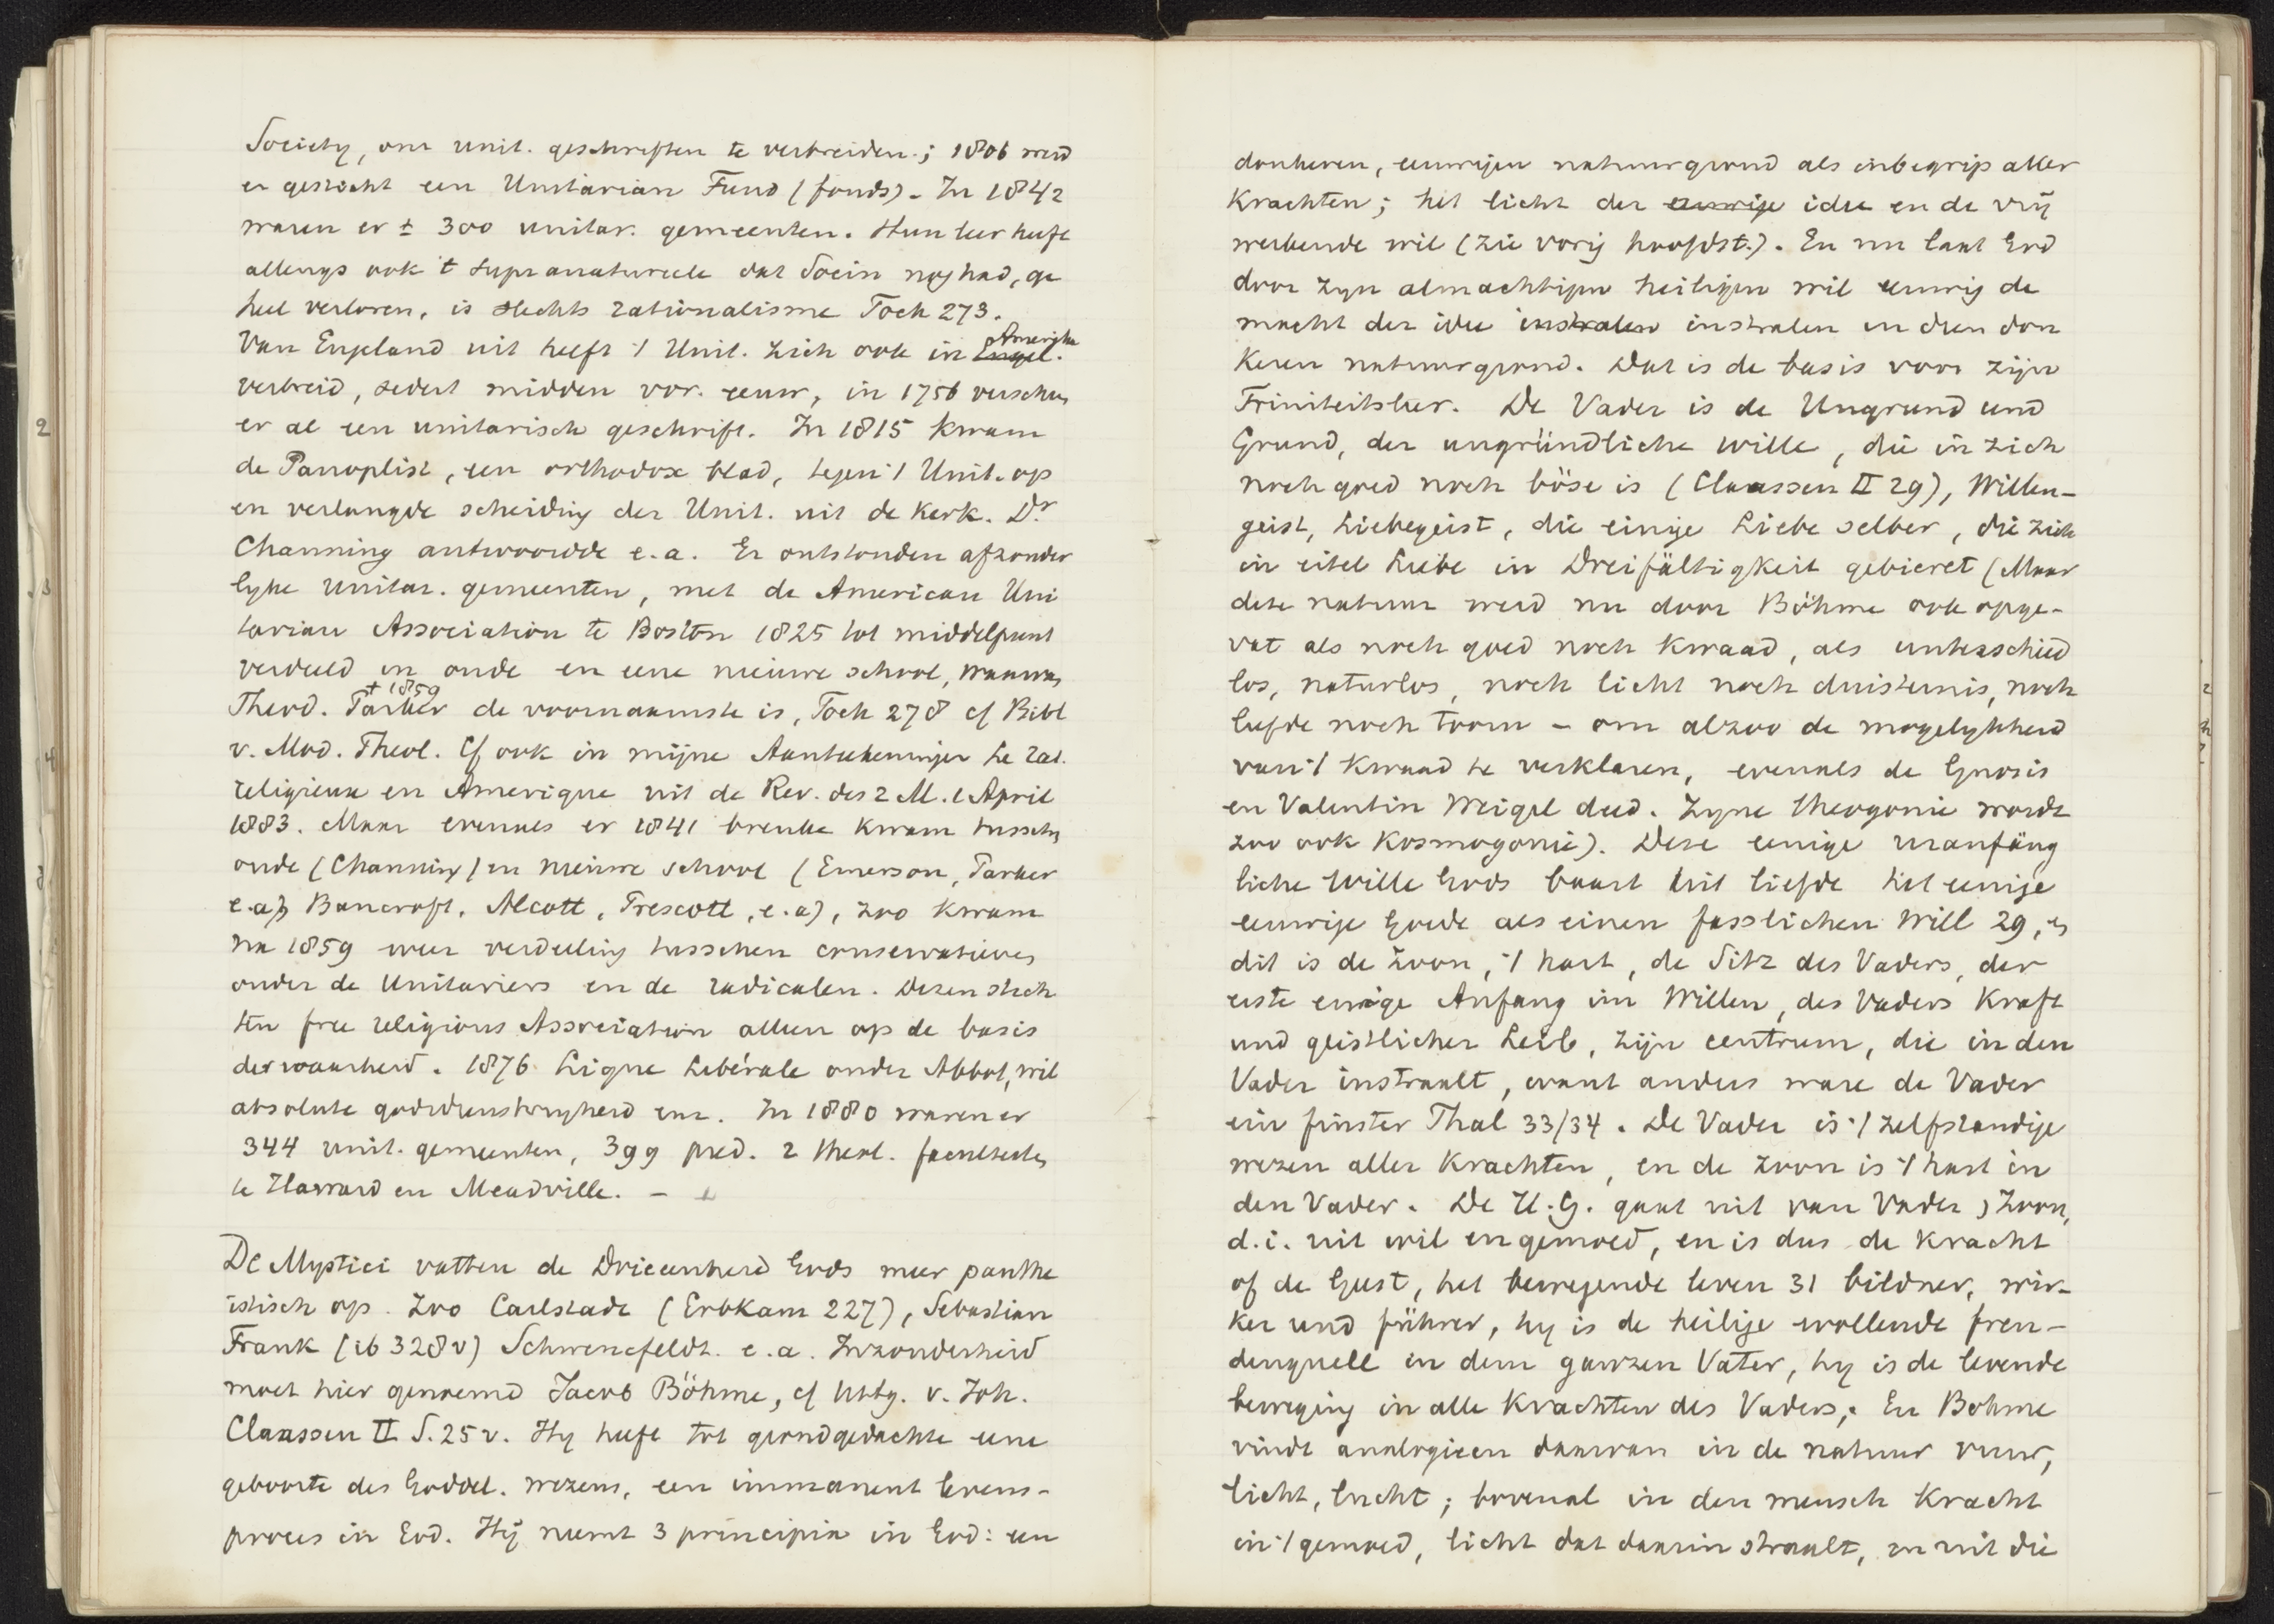 Society, om unit. geschriften te verbreiden; 1806 werd
er gesticht een Unitarian Fund (fonds). In 1842
waren er ± 300 unitar. gemeenten. Hun leer heeft
allengs ook 't supranatureele dat Socin nog had, ge
heel verloren, is slechts rationalisme Tock 273.
Van Engeland uit heeft 't Unit. zich ook in Engel. Amerika
verbreid, sedert midden vor. eeuw, in 1756 verscheen
er al een unitarisch geschrift. In 1815 kwam
de Panoplist, een orthodox blad, tegen 't Unit. op
en verlangde scheiding der Unit. uit de Kerk. Dr
Channing antwoordde e.a. Er ontstonden afzonder
lyke unitar. gemeenten, met de American Uni
tarian Association te Boston 1825 tot middelpunt
verdeeld in oude en eene nieuwe school, waarvan
Theod. Parker † 1859 de voornaamste is, Tock 278 cf Bibl
v. Mod. Theol. Cf ook in mijne Aanteekeningen Le rat.
religieux en Amerique uit de Rev. des 2 M. 1 April
1883. Maar evenals er 1841 breuke kwam tusschen
oude (Channing) en nieuwe school (Emerson, Parker
e.a) Bancroft, Alcott, Prescott, e.a), zoo kwam
na 1859 weer verdeeling tusschen conservatieven
onder de Unitariers en de radicalen. Dezen stich
ten free religious Association alleen op de basis
der waarheid. 1876 Ligue Libérale onder Abbot, wil
absolute godsdienstvryheid enz. In 1880 waren er
344 unit. gemeenten, 399 pred. 2 theol. faculteiten
te Harvard en Meadville. –
De Mystici vatten de Drieeenheid Gods meer panthe
istisch op. Zoo Carlstadt (Erbkam 227), Sebastian
Frank (ib 328 v) Schwencfeldt. e.a. Inzonderheid
moet hier genoemd Jacob Böhme, cf Uitg. v. Joh.
Claassen II S. 25 v. Hy heeft tot grondgedachte eene
geboorte des Goddel. wezens, een immanent levens-
proces in God. Hij neemt 3 principia in God: een
donkeren, eeuwigen natuurgrond als inbegrip aller
krachten; het licht der eeuwige idee en de vrij
werkende wil (zie vorig hoofdst.). En nu laat God
door zyn almachtigen heiligen wil eeuwig de
macht der idee instralen instralen in dien don
keren natuurgrond. Dat is de basis voor zijn
Triniteitsleer. De Vader is de Ungrund und
Grund, der ungründliche Wille, die in zich
noch goed noch böse is (Claassen II 29), Willen-
geist, Liebegeist, die einige Liebe selber, die zich
in eitel Liebe in Dreifältigkeit gebieret (Maar
deze natuur werd nu door Böhme ook opge-
vat als noch goed noch kwaad, als unterschied
los, naturlos, noch licht noch duisternis, noch
liefde noch toorn – om alzoo de mogelykheid
van 't kwaad te verklaren, evenals de Gnosis
en Valentin Weigel deed. Zyne theogonie wordt
zoo ook kosmogonie). Deze eenige uranfäng
liche Wille Gods baart uit liefde het eenige
eeuwige Goede als einen fasslichen Will 29, en
dit is de Zoon, 't hart, de Sitz des Vaders, der
erste ewige Anfang im Willen, des Vaders Kraft
und geistlicher Leib, zijn centrum, die in den
Vader instraalt, want anders ware de Vader
ein finster Thal 33/34. De Vader is 't zelfstandige
wezen aller krachten, en de Zoon is 't hart in
den Vader. De H.G. gaat uit van Vader, Zoon,
d.i. uit wil en gemoed, en is dus de kracht
of de Geest, het bewegende leven 31 bildner, wir-
ker und führer, hy is de heilige wallende freu-
denquell in dem ganzen Vater, hy is de levende
beweging in alle krachten des Vaders. En Bohme
vindt analogieen daarvan in de natuur vuur,
licht, lucht; bovenal in den mensch kracht
in 't gemoed, licht dat daarin straalt, en uit die